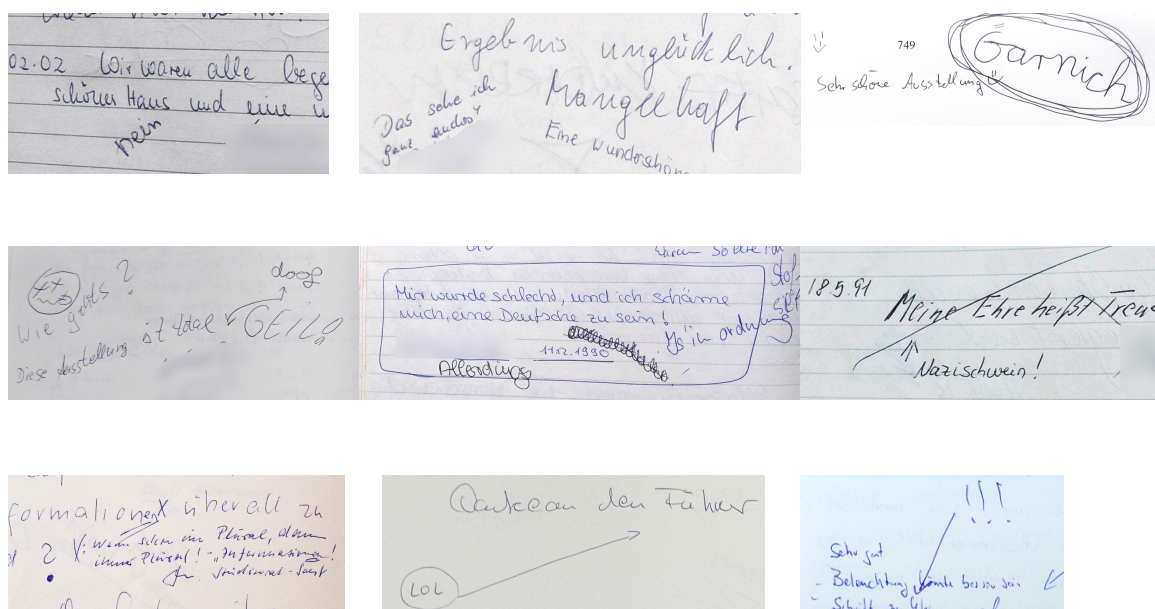 02.02 Wir waren alle
schönes Haus und eine
nein
Ergebnis unglücklich.
Mangelhaft
Das sehe ich
ganz anders!
Eine wunderschön
749
Garnich
Sehr schöne Ausstellung
?
Wie gehts
doog
Diese Ausstellung ist total GEIL!
Mir wurde schlecht, und ich schäme
mich, eine Deutsche zu sein!
Is' in ordnung
11.12.1990
Allerdings
18.5.91
Meine Ehre heißt Treue
Nazischwein!
formationen überall zu
? X: wenn schon im Plural, dann
immer Plural! - "Informationen!
Danke an den Führer
LOL
!!!
Sehr gut
- Beleuchtung könnte besser sein
- Schrift zu